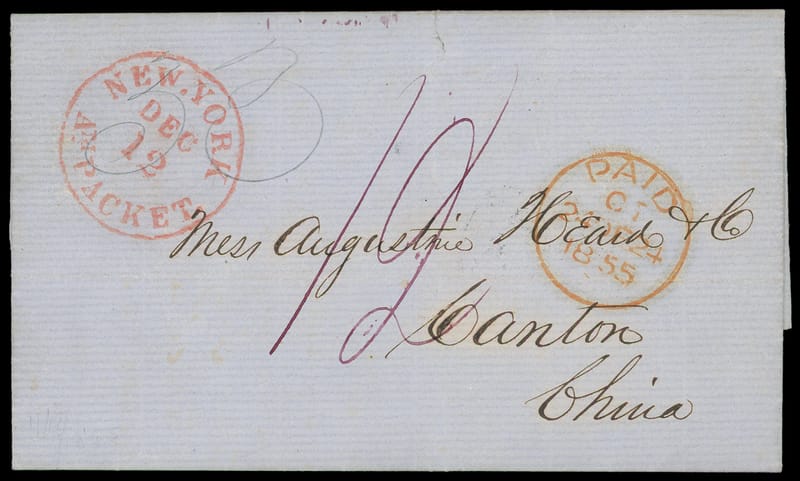 NEW.YORK
DEC
12
Am PACKET
PAID
1855
12
Mess Augustine Heard & Co
Canton
China